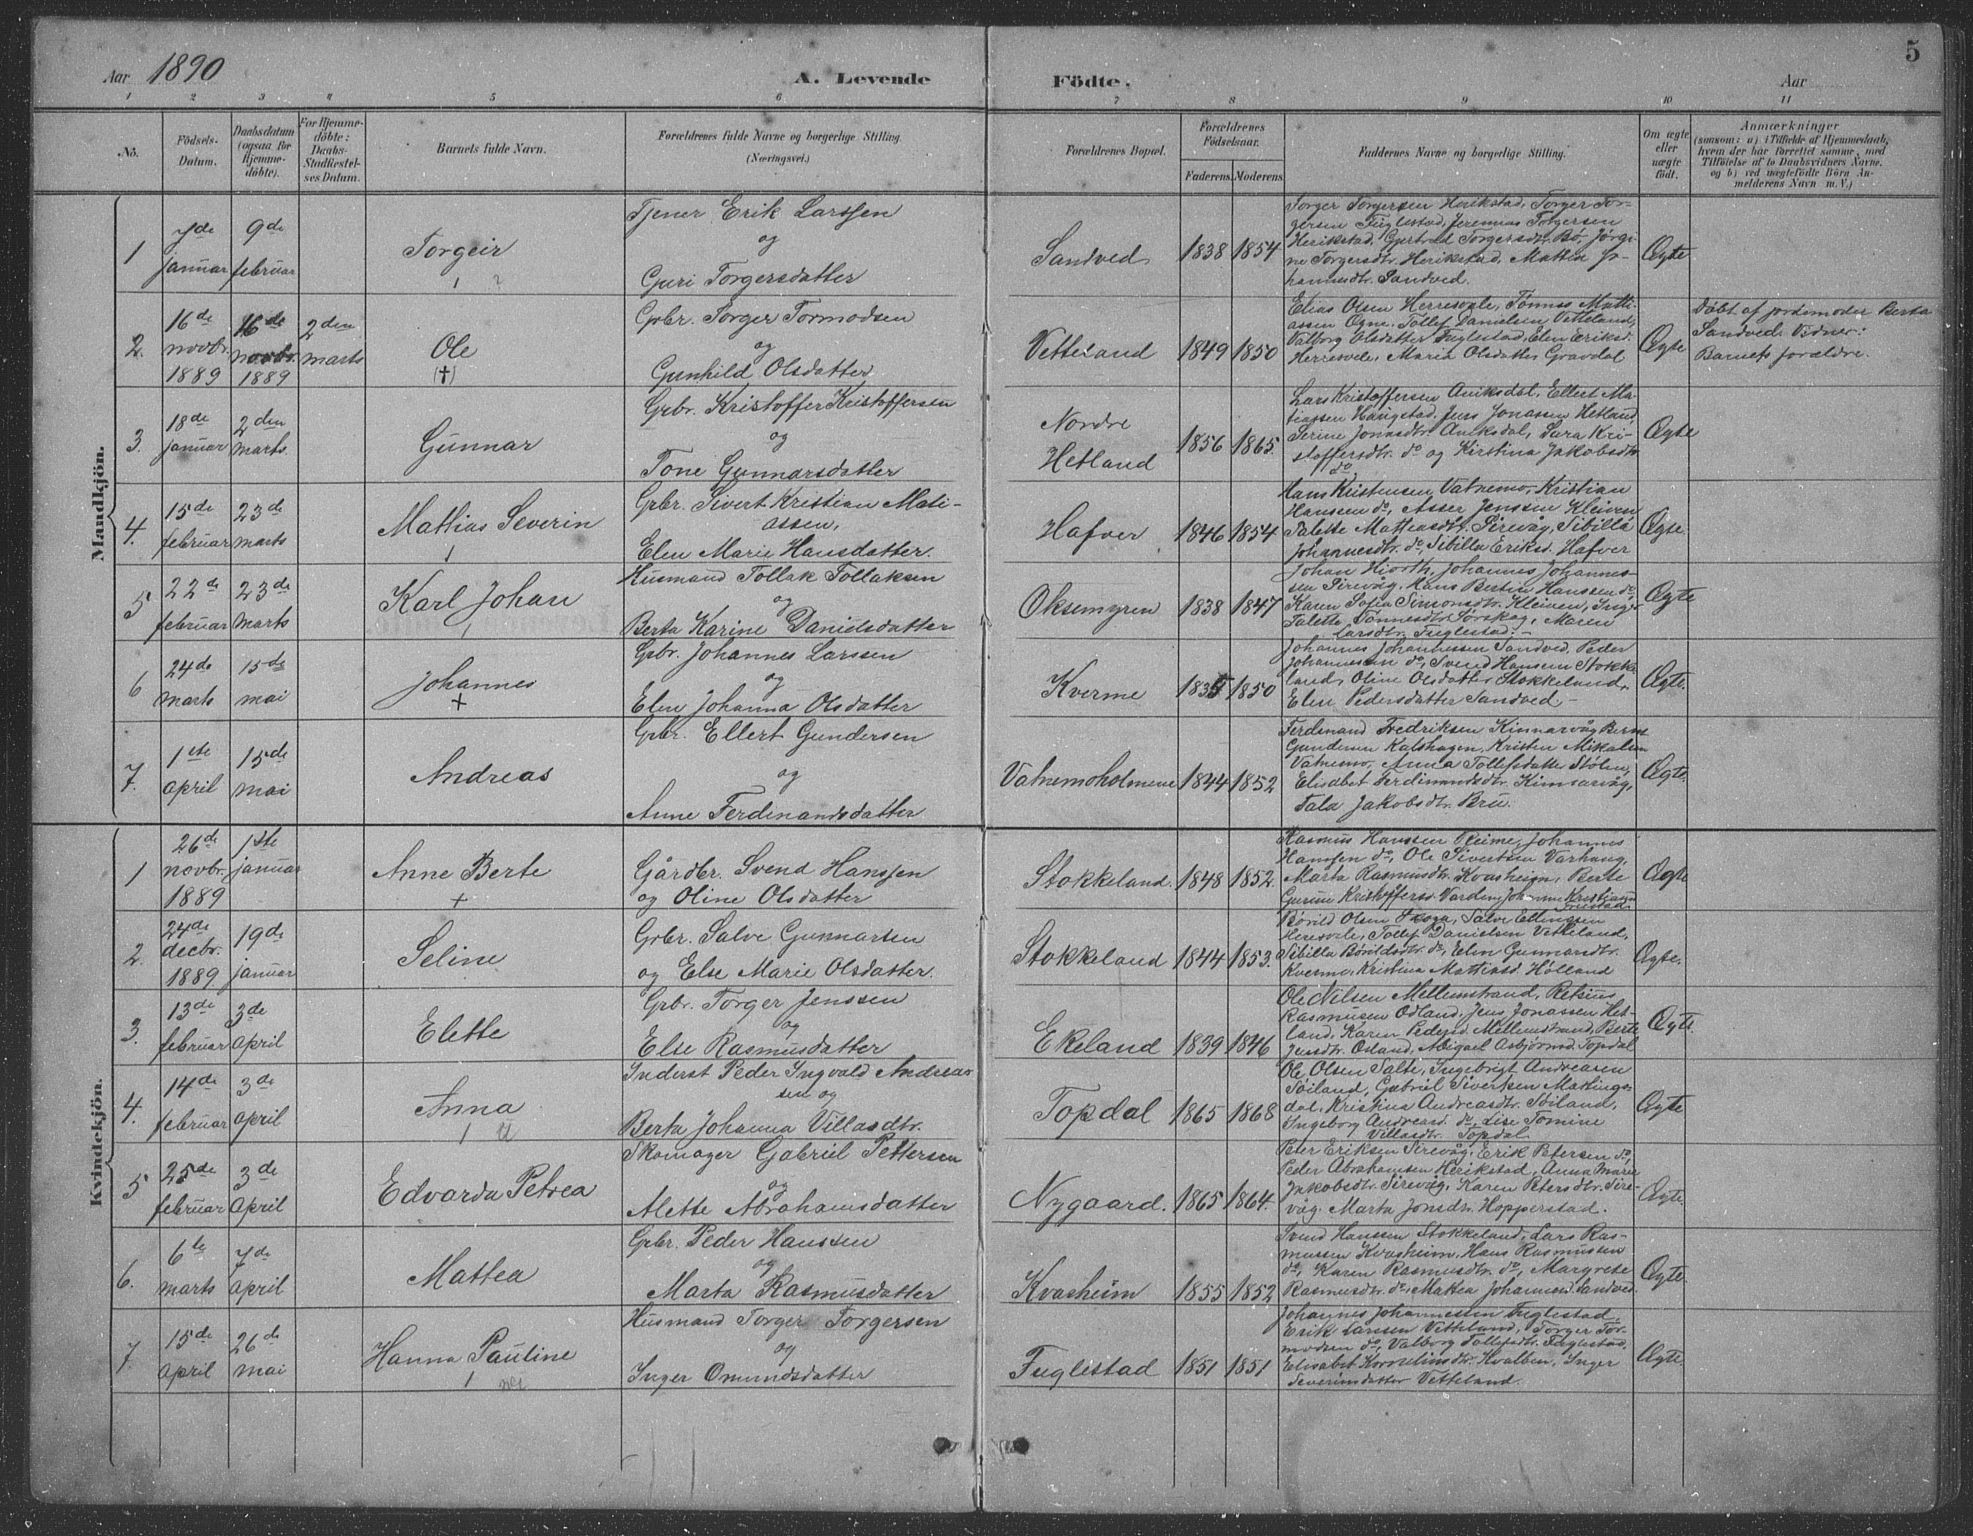 Aar 1890
A. Levende Födte.
Aar
5
1 2 3 4 5 6 7 8 9 10 11
No.
Födsels-Datum.
Daabsdatum (ogsaa for Hjemme-döbte).
For Hjemme-döbte: Daabs-Stadfæstel-ses Datum.
Barnets fulde Navn.
Forældrenes fulde Navne og borgerlige Stilling.
(Næringsvei.)
Forældrenes Bopæl.
Forældrenes Födselsaar.
Faderens. Moderens.
Faddernes Navne og borgerlige Stilling.
Om ægte eller uægte födt.
Anmærkninger
(saasom: a) i Tilfælde af Hjemmedaab, hvem der har forrettet samme, med Tilföielse af to Daabsvidners Navne. og b) ved uægtefödte Börn An-melderens Navn m. V.)
Mandkjön.
1
7de januar
9de februar
Torgeir
Tjener Erik Larssen
og
Guri Torgersdatter
Sandved
1838 1854
Torger Torgersen Herikstad, Torger Tor-
gersen Fuglestad, Jeremias Torgersen
Herikstad, Gertrud Torgersdtr. Bø, Jørgi-
ne Torgersdtr. Herikstad, Mattea Jo-
hannesdtr. Sandved.
Ægte
2.
16de novbr. 1889
16de novbr. 1889
2den marts
Ole
(†)
Grbr. Torger Tormodsen
og
Gunhild Olsdatter
Vetteland
1849 1850
Elias Olsen Herresvele, Tønnes Matti-
assen Ogne, Tollef Danielsen Vetteland,
Valborg Olsdatter Fuglestad, Elen Eriksd.
Herresvele, Maria Olsdatter Gravdal
Ægte
Döbt af jordemoder Berta
Sandved. Vidner:
Barnets forældre.
3.
18de januar
2den marts
Gunnar
Grbr. Kristoffer Kristoffersen
og
Tone Gunnarsdatter
Nordre
Hetland
1856 1865.
Lars Kristoffersen Aniksdal, Ellert Ma-
tiassen Haugstad, Jens Jonassen Hetland,
Serine Jonasdtr. Aniksdal, Sara Kri-
stoffersdtr. do og Kirstina Jakobsdtr.
do
Ægte
4.
15de februar
23de marts
Mathias Severin
Grbr. Sivert Kristian Mati-
assen,
Elen Marie Hansdatter.
Hafver
1846 1854
Hans Kristensen Vatnemo, Kristian
Hanssen do, Asser Jenssen Kleiven
Talette Matteasdtr. Sirevåg, Sibilla
Johannesdtr. do, Sibilla Eriksd. Hafver
Ægte.
5
22de februar
23de marts
Karl Johan
Husmand Tollak Tollaksen
og
Berta Karine Danielsdatter
Oksemyren
1838 1847
Johan Hiorth, Johannes Johannes-
sen Sirevåg, Hans Bertin Hanssen do,
Karen Sofia Simonsdtr. Kleiven, Inger
Talette Tønnesdtr. Tørskog, Maren
Larsdtr. Fuglestad.-
Ægte
6
24de marts
15de mai
Johannes
†
Grbr. Johannes Larssen
og
Elen Johanna Olsdatter
Kverme
1835 1850
Johannes Johannessen Sandved, Peder
Johannessen do, Svend Hansen Stokke-
land, Oline Olsdatter Stokkeland,
Elen Pedersdatter Sandved.-
Ægte.
7.
1ste april
15de mai
Andreas
Grbr. Ellert Gundersen
og
Anne Ferdinandsdatter
Vatnemoholmene
1844 1852
Ferdinand Fredriksen Kinnarvåg
Gundersen Kalshagen, Kristen Mikalsen
Vatnemo, Anna Tollefsdatter Støle,
Elisabet Ferdinandsdtr. Kimsarvåg,
Tala Jakobsdtr. Bru.
Ægte.
Kvindekjön.
1
26de novbr. 1889
1ste januar
Anne Berte
†
Gårdbr. Svend Hanssen
og Oline Olsdatter
Stokkeland.
1848 1852.
Rasmus Hanssen Kleime, Johannes
Hanssen do, Ole Sivertsen Varhaug,
Marta Rasmusdtr. Kvasheim, Berte
Gurine Kristoffersd. Varden, Johanne Kristians
Ægte
2.
24de decbr. 1889
19de januar
Seline
Grbr. Salve Gunnarsen
og Else Marie Olsdatter.
Stokkeland
1844 1853.
Børild Olsen Skoga, Salve Ellingsen
Heresvele, Tollef Danielsen Vetteland,
Sibilla Børildsdtr. do, Elen Gunnarsdtr.
Kverme, Kristina Mattiasd. Hølland
Ægte.
3.
13de februar
3de april
Elette
Grbr. Torger Jenssen
og
Else Rasmusdatter
Ekeland
1839 1846
Ole Nilsen Mellemstrand, Retsius
Rasmussen Odland, Jens Jonassen Het-
land, Karen Pedersd. Mellemstrand, Berte
Jensdtr. Osland, Abigael Asbjørnsd. Topdal
Ægte.
4.
14de februar
3de april
Anna
Inderst Peder Ingvald Andreas-
sen og
Berta Johanna Villasdtr.
Topdal
1865 1868
Ole Olsen Salte, Ingebrigt Andreasen
Søiland, Gabriel Sivertsen Mattinges-
dal, Kristina Andreasdtr. Søiland,
Ingeborg Andreasd. do, Lise Tomine
Villasdtr. Topdal
Ægte
5
25de februar
3de april
Edvarda Petrea
Skomager Gabriel Pettersen
og
Alette Abrahamsdatter
Nygaard.
1865 1864.
Peter Eriksen Sirevåg, Erik Petersen do
Peder Abrahamsen Herikstad, Anna Marie
Jakobsdtr. Sirevåg, Karen Petersdtr. Sire-
våg. Marta Jonsdtr. Hopperstad.
Ægte.
6.
6te marts
7de April
Mattea
Grbr. Peder Hanssen
og
Marta Rasmusdatter
Kvasheim
1855 1852
Svend Hanssen Stokkeland, Lars Ras-
mussen Kvasheim, Hans Rasmussen
do, Karen Rasmusdtr. do, Margrete
Rasmusdtr. do, Mattea Johannesd. Sandved.
Ægte.
7.
15de april
26de mai
Hanna Pauline
Husmand Torger Torgersen
og
Inger Omundsdatter
Fuglestad
1851 1851
Johannes Johannessen Fuglestad,
Erik Larsen Vetteland, Torger Tor-
modsen do, Valborg Tollefsdtr. Fuglestad,
Elisabet Korneliusdtr. Hvalben, Inger
Severinsdatter Vetteland.
Ægte.